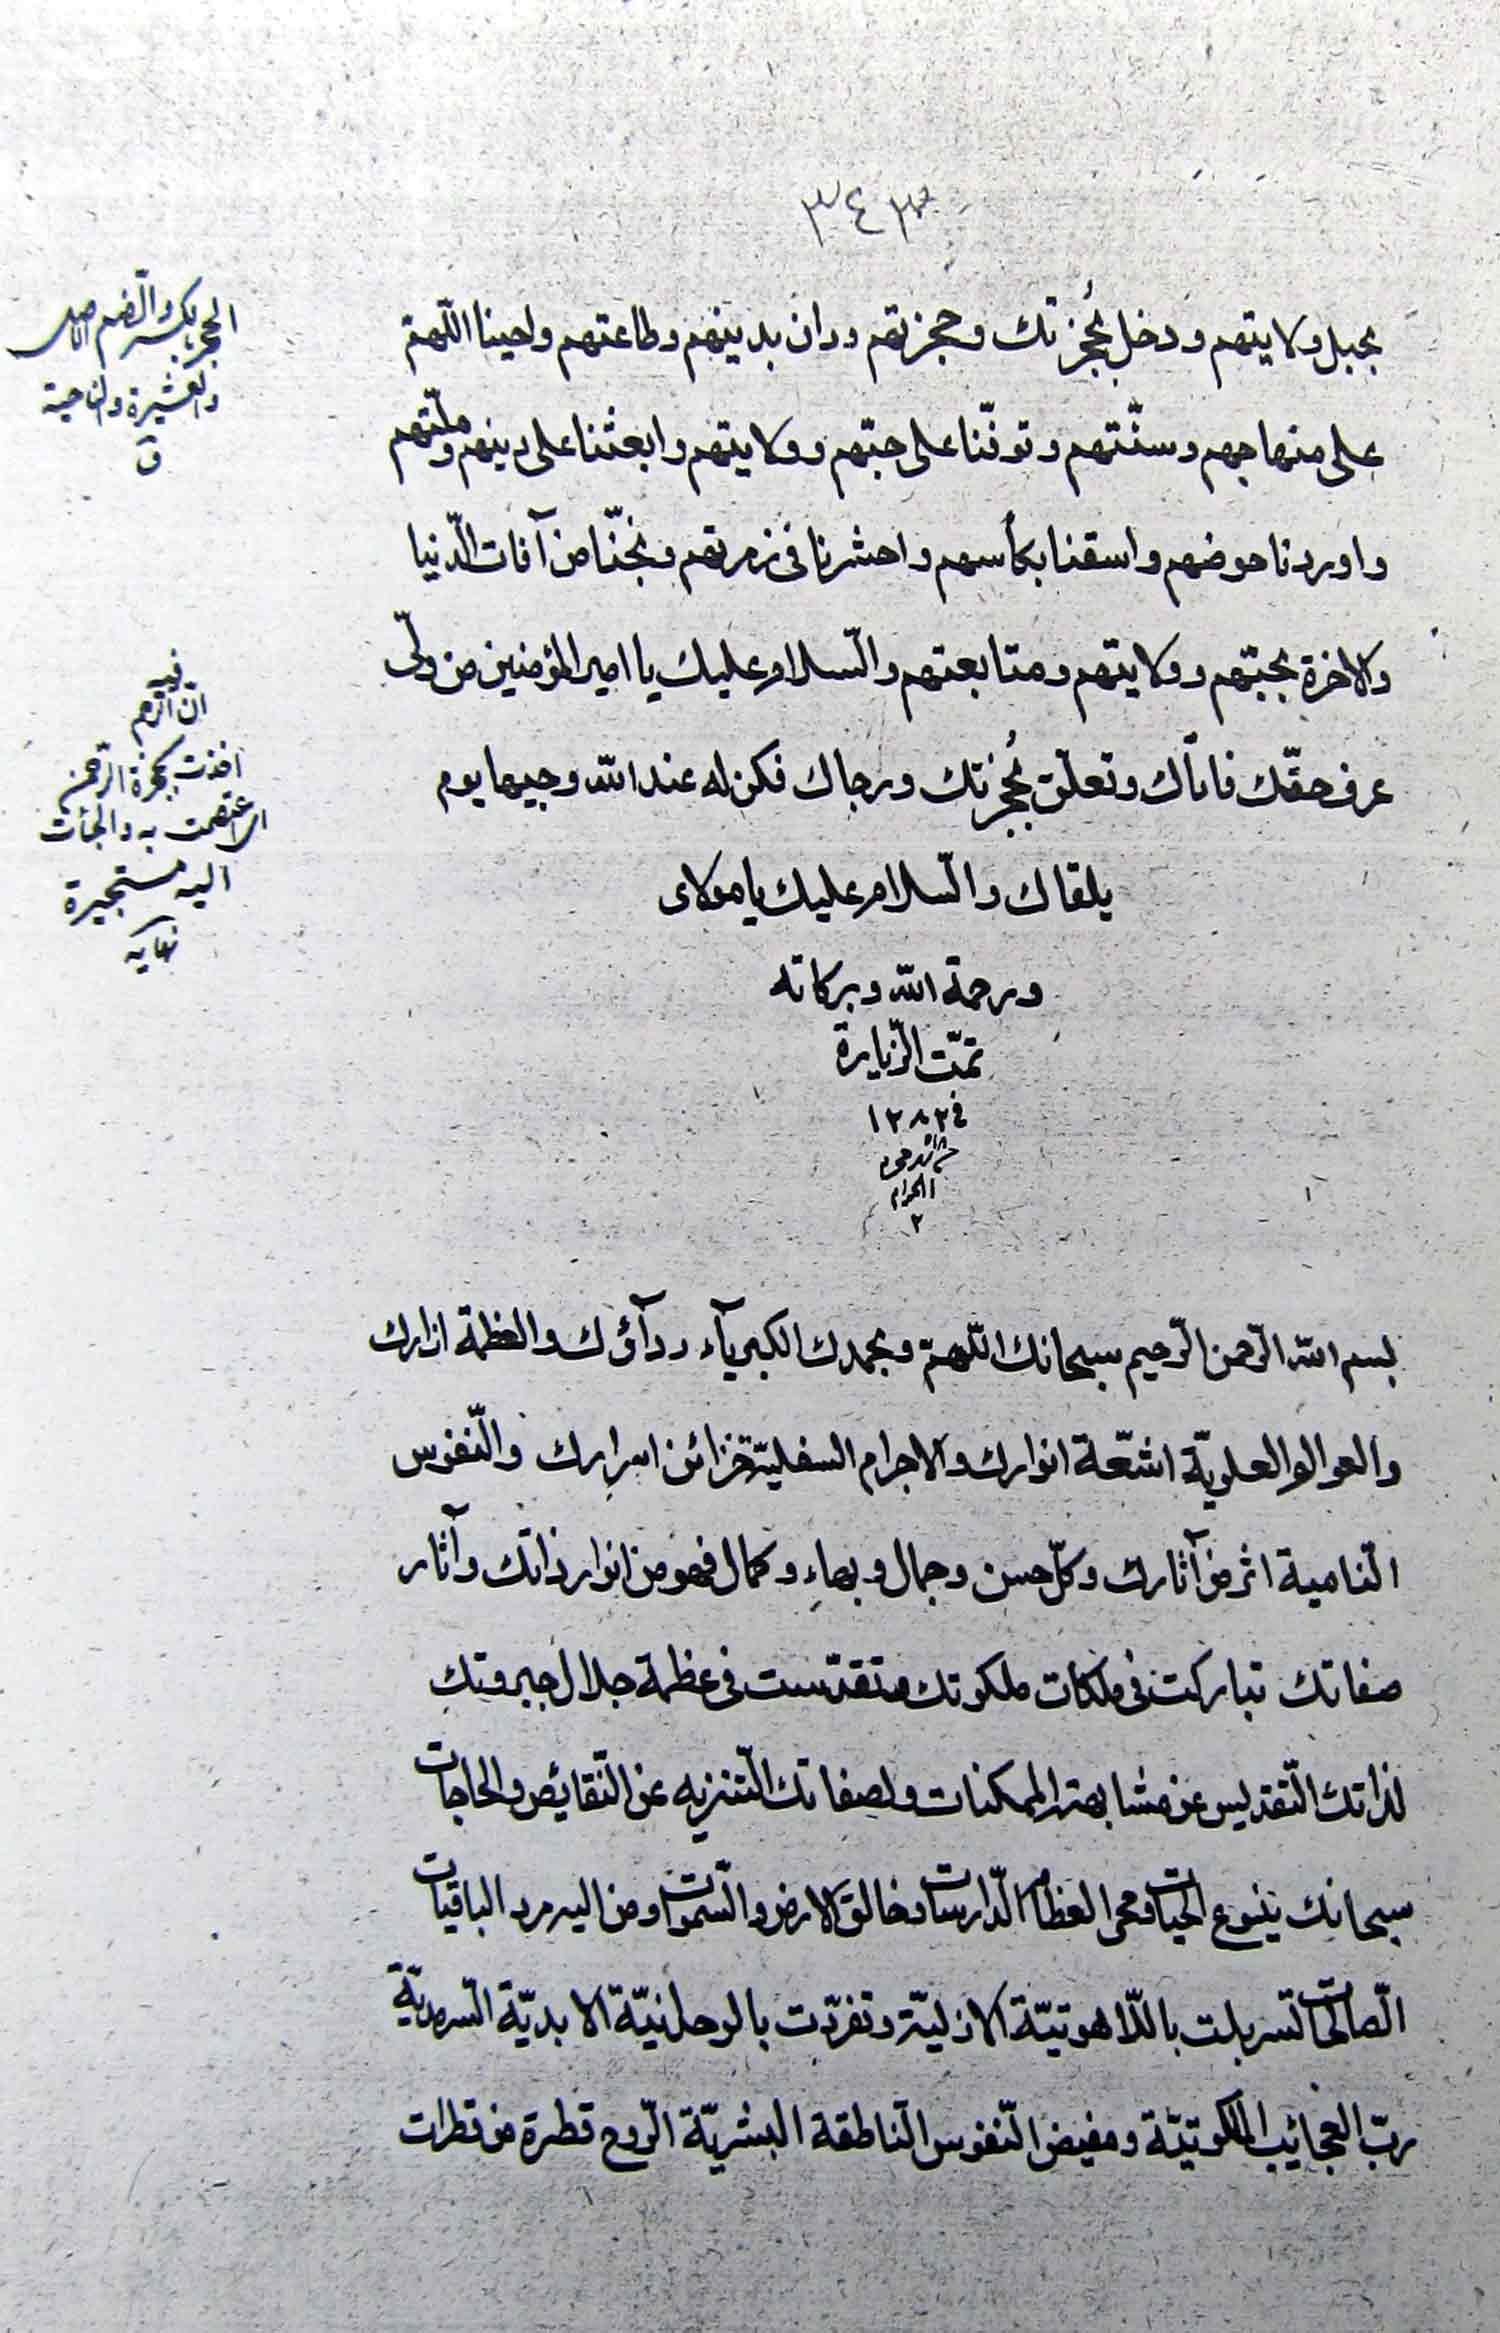 ٣٤٣
بحبل ولايتهم ودخل بحُجزتك وحجزتهم ودان بدينهم وطاعتهم واحينا اللّهمّ
على منهاجهم وسنّتهم وتوفّنا على حبّهم وولايتهم وابعثنا على دينهم وملّتهم
واوردنا حوضهم واسقنا بكأسهم واحشرنا فى زمرتهم ونجّنا من آفات الدّنيا
والاخرة بحبّهم وولايتهم ومتابعتهم والسّلام عليك يا امير المؤمنين من ولّى
عرف حقّك فاتاك وتعلّق بحُجزتك ورجاك فكن له عند الله وجيها يوم
يلقاك والسّلام عليك يا مولاى
ورحمة الله وبركاته
تمّت الزّيارة
فى ١٢٨٢
الحرام
٢
الحجز بالكسر والضم الاصل
والعشيرة والناحية
ق
فيه
ان الرحم
اخذت بحجزة الرحمن
اى اعتصمت به والتجأت
اليه مستجيرة
نهايه
بسم الله الرّحمن الرّحيم سبحانك اللّهمّ وبحمدك الكبريآء ردآؤك والعظمة ازارك
والعوالم العلويّة اشعّة انوارك والاجرام السفليّة خزائن اسرارك والنّفوس
النّامية اثر من آثارك وكلّ حسن وجمال وبهاءٍ وكمال فهو من انوار ذاتك وآثار
صفاتك تباركت فى ملكات ملكوتك وتقدّست فى عظمة جلال جبروتك
لذاتك التّقديس عن مشابهة الممكنات ولصفاتك التّنزيه عن النّقايص والحاجات
سبحانك ينبوع الحيات ومحى العظام الدّارسات وخالق الارض والسّموات ومن اليه مرد الباقيات
الصّالحات تسربلت باللّاهوتيّة الازليّة وتفرّدت بالوحدانيّة الابديّة السّرمديّة
ربّ العجائب الملكوتيّة ومفيض النّفوس النّاطقة البشريّة الرّوح قطرة من قطرات